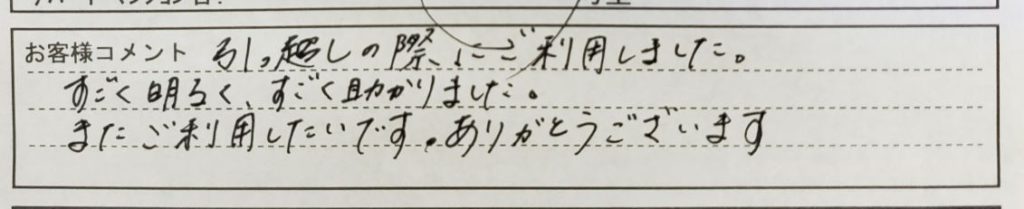 お客様コメント 引っ越しの際にご利用しました。
すごく明るく、すごく助かりました。
またご利用したいです。ありがとうございます